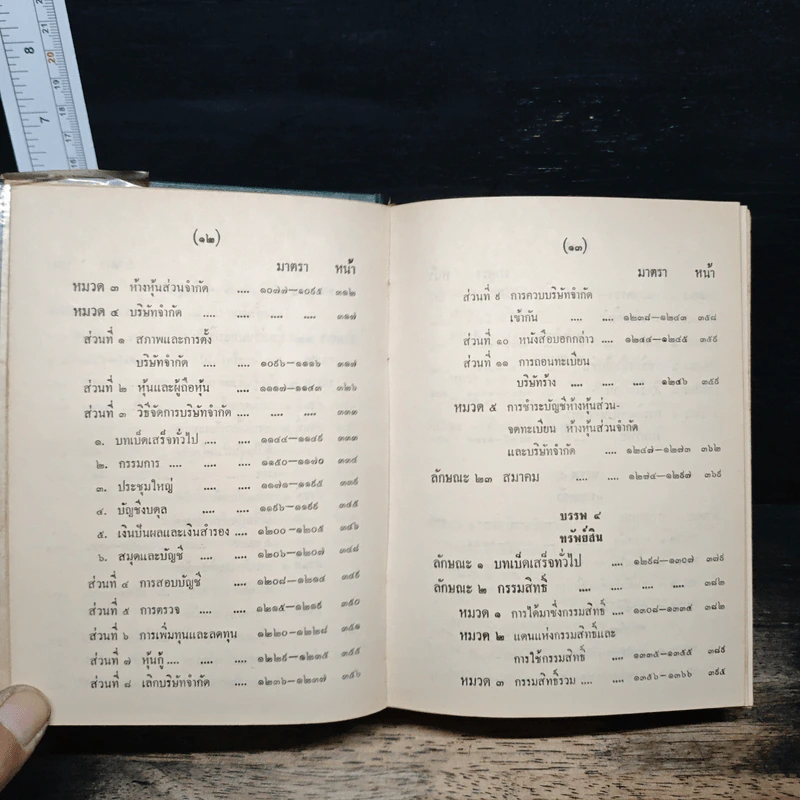 (๑๒)
มาตรา หน้า
หมวด ๓ ห้างหุ้นส่วนจำกัด .... ๑๐๗๗—๑๐๙๕ ๓๑๒
หมวด ๔ บริษัทจำกัด .... .... .... .... ๓๑๗
ส่วนที่ ๑ สภาพและการตั้ง
บริษัทจำกัด .... .... ๑๐๙๖—๑๑๑๖ ๓๑๗
ส่วนที่ ๒ หุ้นและผู้ถือหุ้น .... ๑๑๑๗—๑๑๔๓ ๓๒๖
ส่วนที่ ๓ วิธีจัดการบริษัทจำกัด .... .... .... ๓๓๓
๑. บทเบ็ดเสร็จทั่วไป .... .... ๑๑๔๔—๑๑๔๙ ๓๓๓
๒. กรรมการ .... .... .... ๑๑๕๐—๑๑๗๐ ๓๓๔
๓. ประชุมใหญ่ .... .... ๑๑๗๑—๑๑๙๕
๔. บัญชีงบดุล .... .... ๑๑๙๖—๑๑๙๙ ๓๔๕
๕. เงินปันผลและเงินสำรอง .... ๑๒๐๐—๑๒๐๕ ๓๔๖
๖. สมุดและบัญชี .... .... ๑๒๐๖—๑๒๐๗ ๓๔๘
ส่วนที่ ๔ การสอบบัญชี .... ๑๒๐๘—๑๒๑๔ ๓๔๙
ส่วนที่ ๕ การตรวจ .... .... ๑๒๑๕—๑๒๑๙ ๓๕๐
ส่วนที่ ๖ การเพิ่มทุนและลดทุน ๑๒๒๐—๑๒๒๘ ๓๕๑
ส่วนที่ ๗ หุ้นกู้ .... .... ๑๒๒๙—๑๒๓๕ ๓๕๕
ส่วนที่ ๘ เลิกบริษัทจำกัด .... ๑๒๓๖—๑๒๓๗ ๓๕๖
(๑๓)
มาตรา หน้า
ส่วนที่ ๙ การควบบริษัทจำกัด
เข้ากัน .... .... ๑๒๓๘—๑๒๔๓ ๓๕๘
ส่วนที่ ๑๐ หนังสือบอกกล่าว .... ๑๒๔๔—๑๒๔๕ ๓๕๙
ส่วนที่ ๑๑ การถอนทะเบียน
บริษัทร้าง .... .... .... ๑๒๔๖ ๓๕๙
หมวด ๕ การชำระบัญชีห้างหุ้นส่วน-
จดทะเบียน ห้างหุ้นส่วนจำกัด
และบริษัทจำกัด .... ๑๒๔๗—๑๒๗๓ ๓๖๒
ลักษณะ ๒๓ สมาคม .... .... ๑๒๗๔—๑๒๙๗ ๓๖๙
บรรพ ๔
ทรัพย์สิน
ลักษณะ ๑ บทเบ็ดเสร็จทั่วไป .... ๑๒๙๘—๑๓๐๗ ๓๗๙
ลักษณะ ๒ กรรมสิทธิ์ .... .... .... .... ๓๘๒
หมวด ๑ การได้มาซึ่งกรรมสิทธิ์ .... ๑๓๐๘—๑๓๓๔ ๓๘๒
หมวด ๒ แดนแห่งกรรมสิทธิ์และ
การใช้กรรมสิทธิ์ .... ๑๓๓๕—๑๓๕๕ ๓๘๙
หมวด ๓ กรรมสิทธิ์รวม .... .... ๑๓๕๖—๑๓๖๖ ๓๙๕
8
7
21
20
19
18
17
16